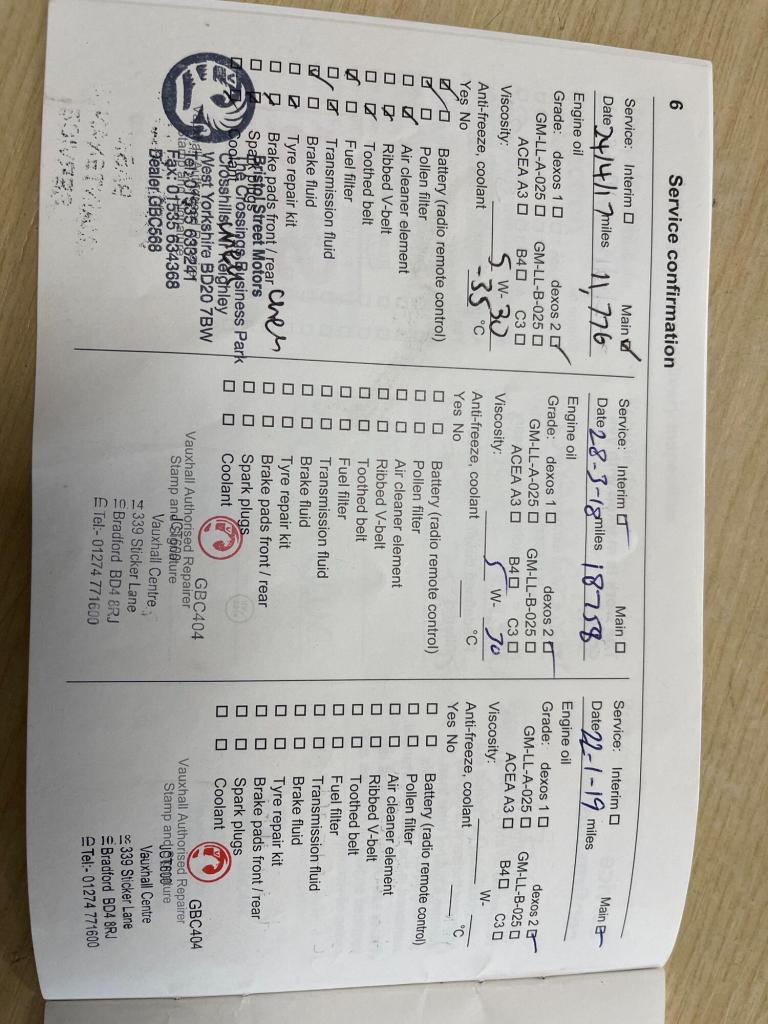 6 Service confirmation
Service: Interim Main
Date 24/4/17 miles 11,776
Engine oil
Grade: dexos 1 dexos 2
GM-LL-A-025 GM-LL-B-025
ACEA A3 B4 C3
Viscosity: 5 W- 30
Anti-freeze, coolant -35 °C
Yes No
Battery (radio remote control)
Pollen filter
Air cleaner element
Ribbed V-belt
Toothed belt
Fuel filter
Transmission fluid
Brake fluid
Tyre repair kit
Brake pads front / rear
Spark plugs
Coolant
Bristol Street Motors
The Crossings Business Park
Crosshills, Nr Keighley
West Yorkshire BD20 7BW
Tel: 01535 633241
Fax: 01535 654368
Dealer: GBC568
Service: Interim Main
Date 28-3-18 miles 18758
Engine oil
Grade: dexos 1 dexos 2
GM-LL-A-025 GM-LL-B-025
ACEA A3 B4 C3
Viscosity: 5 W- 30
Anti-freeze, coolant °C
Yes No
Battery (radio remote control)
Pollen filter
Air cleaner element
Ribbed V-belt
Toothed belt
Fuel filter
Transmission fluid
Brake fluid
Tyre repair kit
Brake pads front / rear
Spark plugs
Coolant
GBC404
Vauxhall Authorised Repairer
Stamp and signature
JCT600
Vauxhall Centre
339 Sticker Lane
Bradford BD4 8RJ
Tel:- 01274 771600
Service: Interim Main
Date 22-1-19 miles
Engine oil
Grade: dexos 1 dexos 2
GM-LL-A-025 GM-LL-B-025
ACEA A3 B4 C3
Viscosity: W-
Anti-freeze, coolant °C
Yes No
Battery (radio remote control)
Pollen filter
Air cleaner element
Ribbed V-belt
Toothed belt
Fuel filter
Transmission fluid
Brake fluid
Tyre repair kit
Brake pads front / rear
Spark plugs
Coolant
GBC404
Vauxhall Authorised Repairer
Stamp and signature
JCT600
Vauxhall Centre
339 Sticker Lane
Bradford BD4 8RJ
Tel:- 01274 771600